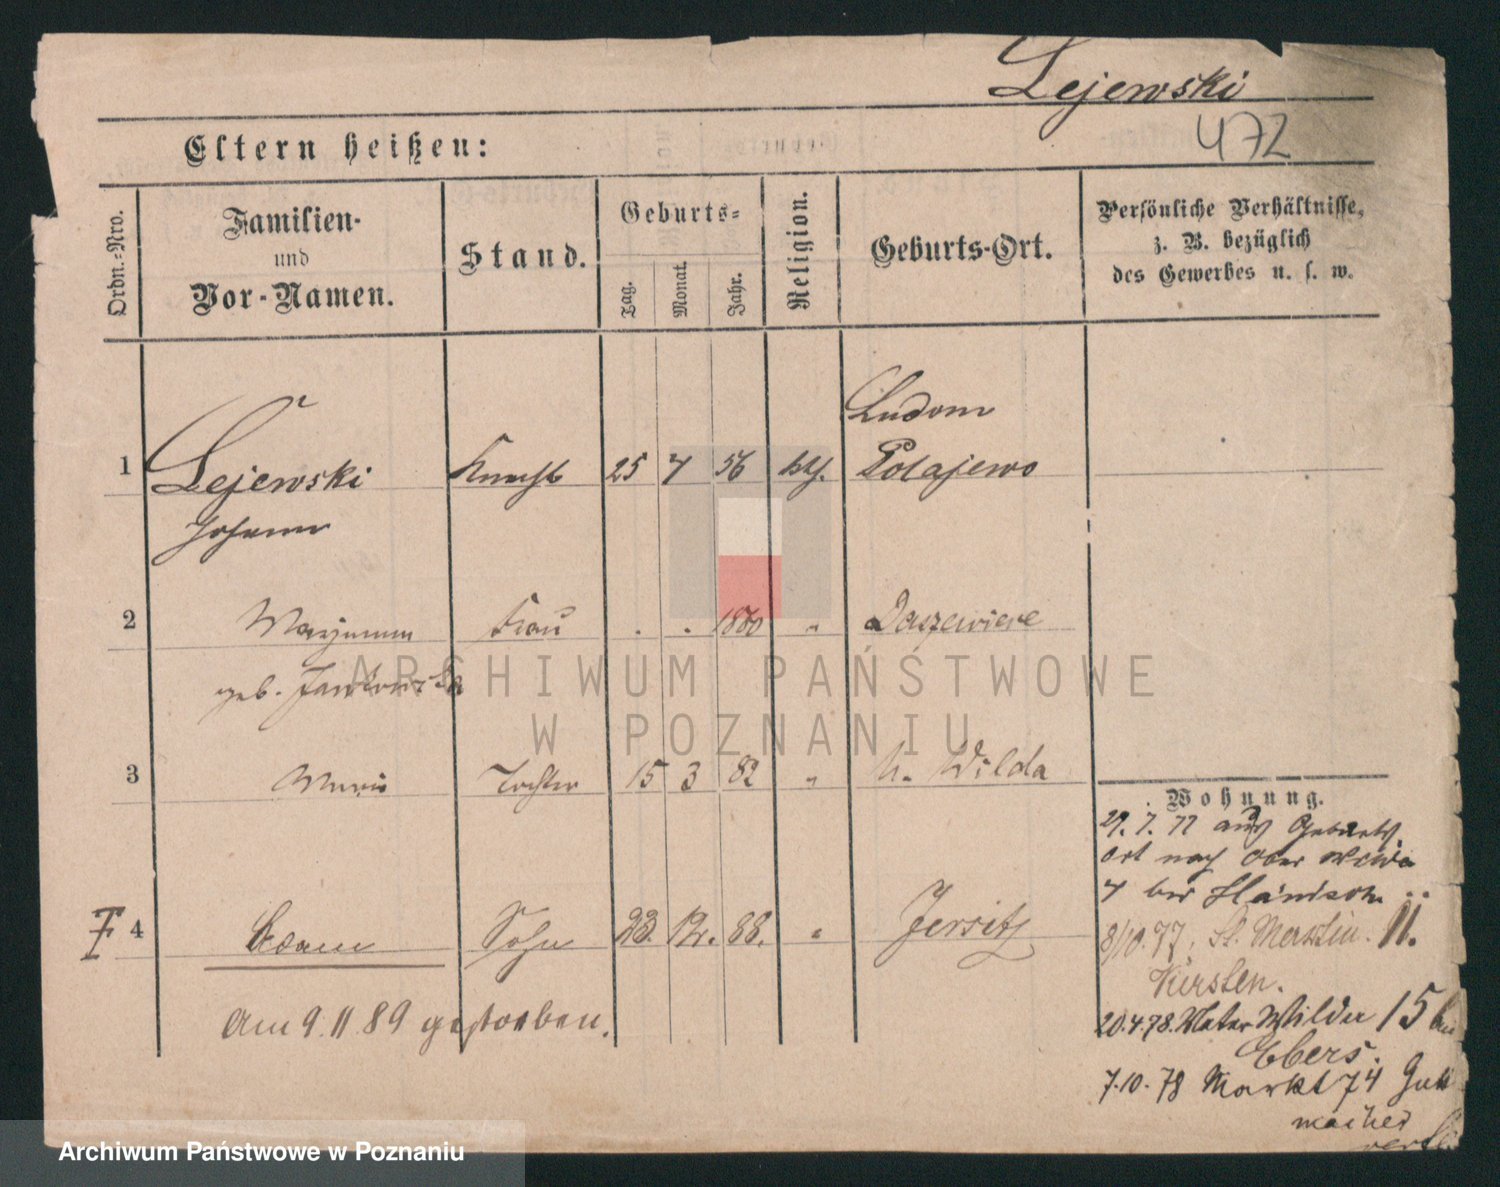 Lejewski
472
Eltern heißen:
Ordn.-Nro.
Familien-
und
Vor-Namen.
Stand.
Geburts-
Tag.
Monat.
Jahr.
Religion.
Geburts-Ort.
Persönliche Verhältnisse,
z. B. bezüglich
des Gewerbes u. s. w.
Ludom
1 Lejewski Knecht 25 7 56 kth. Polajewo
Johann
2 Marjanna Frau . . 1860 " Daszewice
geb. Jankowska
3 Maria Tochter 15 3 82 " U. Wilda
4 Adam Sohn 23. 12. 88. " Jersitz
am 9.11 89 gestorben.
Wohnung.
29. 7. 77 aus Geburts
ort nach Ober Wilda
7 bei
8/10. 77. St. Martin. 11.
Kirsten.
20.4.78. Unter Wilda 15 bei
Ebers.
7.10.78 Markt 74 Gutt
macher
ARCHIWUM PAŃSTWOWE
W POZNANIU
Archiwum Państwowe w Poznaniu